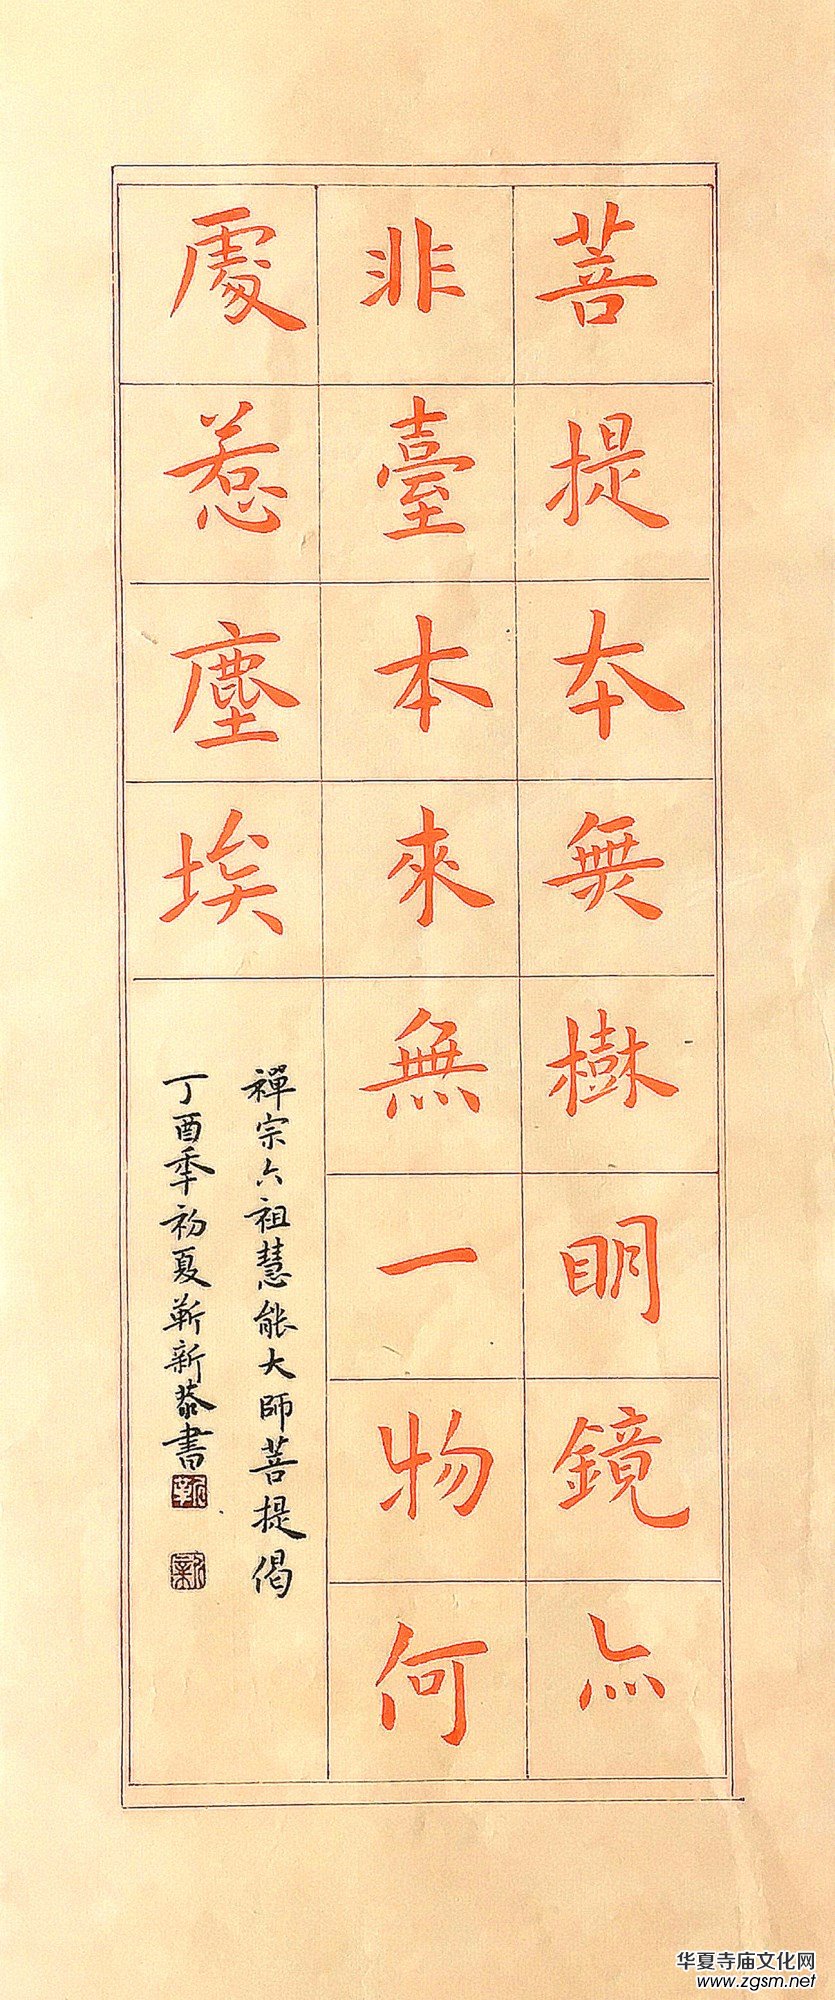 菩提本無樹明鏡亦
非臺本來無一物何
處惹塵埃
禪宗六祖慧能大師菩提偈
丁酉季初夏靳新恭書
靳
新
华夏寺庙文化网
www.zgsm.net